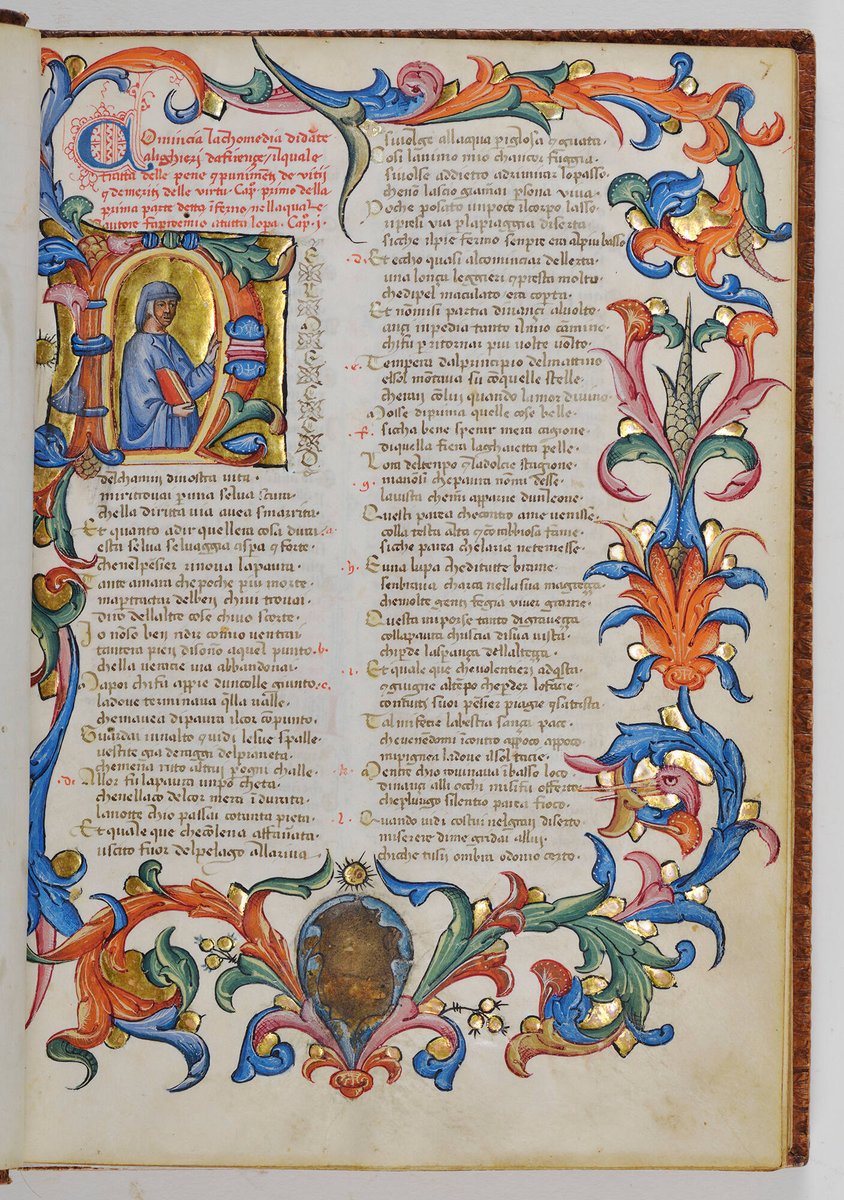 Comincia la chomedia di dante
alighieri da firençe, il quale
tratta delle pene q punimẽti de vitii
q demeriti delle virtu. Cap. primo della
prima parte detta ĩferno, nella quale
lautore fa prohemio a tutta lopa. Cap. i.
N
EL MEÇO
del chamin di nostra vita.
mi ritrovai p una selva scura
che lla diritta via avea smarrita.
Et quanto a dir quellera cosa dura
esta selva selvaggia aspa q forte.
che nel pẽsier rinova la paura.
Tante amara che poche piu morte.
ma p trattar del ben chivi trovai.
diro dellaltre cose chivo scorte.
Io nõ so ben ridir comio ventrai
tantera pien di sõno a quel punto. b.
che lla verace via abbandonai.
Mapoi chi fu appie dun colle giunto. c.
la dove terminava q̃lla valle.
che mavea di paura il cor cõpunto.
Guardai in alto q vidi le sue spalle.
vestite gia deraggi del pianeta.
che mena ritto altrui p ogni challe.
d. Allor fu la paura un põ cheta.
che nellaco del cor mera ĩdurata.
la notte chio passai cõ tanta pieta.
Et quale que che cõ lena affãnata.
uscito fuor del pelago alla riva.
Si volge allacqua pigliosa q guata.
Cosi lanimo mio chancor fuggia.
si volse addietro a rimirar lo passo.
che nõ lascio giamai psona viva.
Poche posato un poco il corpo lasso.
ripresi via p la piaggia diserta.
si che il pie fermo sempre era al piu basso
d. Et eccho quasi al cominciar dellerta.
una lonça leggieri q presta molto.
che di pel maculato era copta.
Et nõ mi si partia dinançi al volto.
ançi inpedia tanto il mio cãmino.
chi fu p ritornar piu volte volto.
e. Tempera dal principio del mattino
el sol montava su con quelle stelle.
cheran cõ lui quando lamor divino.
Mosse di prima quelle cose belle.
f. si cha bene sperar mera cagione.
di quella fiera la ghaietta pelle.
Lora del tempo q la dolcie stagione.
g. ma nõ si che paura nõ mi desse.
la vista che mi apparve dun leone.
Questi parea che contro a me venisse.
colla testa alta q cõ rabbiosa fame.
si che parea che laria ne temesse.
h. E una lupa che di tutte brame.
senbrava charca nella sua magreçça.
che molte genti fe gia viver grame.
Questa mi porse tanto di graveçça
colla paura chuscia di sua vista.
chi pde la sperança dellalteçça.
i. Et quale que che volentieri acq̃sta.
q giugne al tẽpo che pder lo facie.
con tutti suoi pẽsier piagie q satrista.
Tal mi fecie la bestia sança pace.
che venendomi ĩcontro appoco appoco.
mi pigneva la dove il sol tacie.
k. Mentre chio rovinava ĩ basso loco.
dinançi alli occhi mi si fu offerto.
che p lungo silentio parea fioco.
l. Quando vidi costui nel gran diserto.
miserere di me gridai a llui.
chi che tu sii o ombra od omo certo.